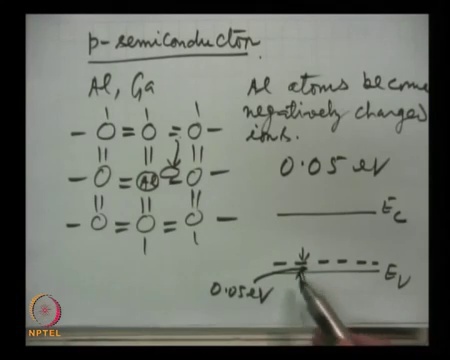 p-semiconductor.
Al, Ga
Al
Al atoms become
negatively charged
ions.
0.05 eV
Ec
Ev
0.05eV
NPTEL